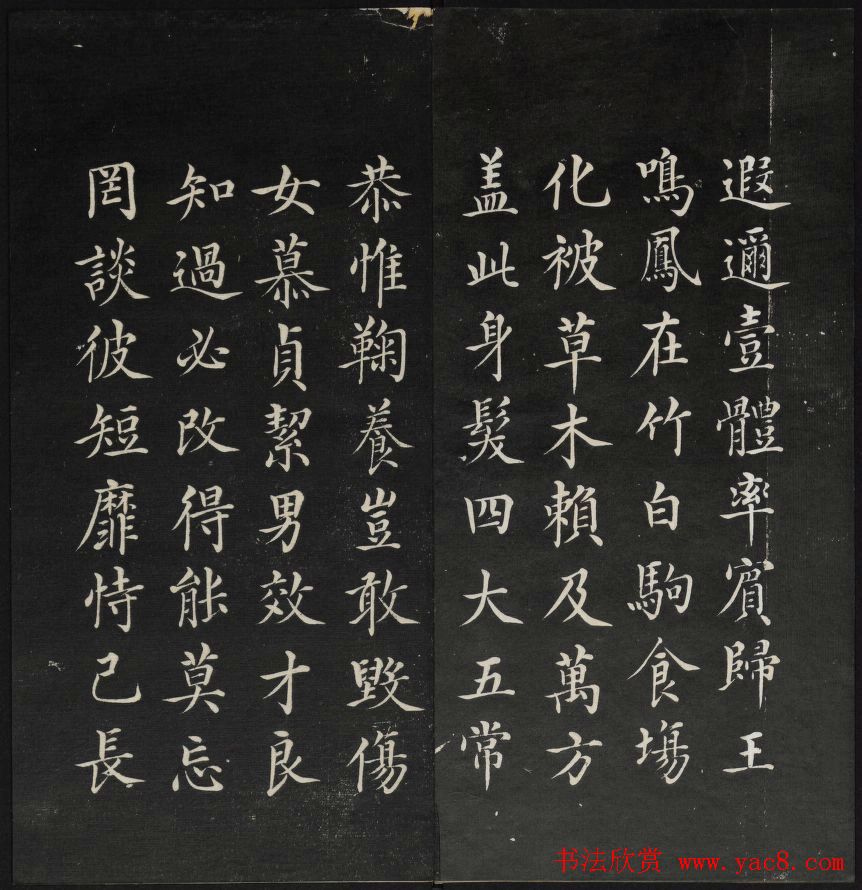 遐邇壹體率賓歸王
鳴鳳在竹白駒食場
化被草木賴及萬方
盖此身髮四大五常
恭惟鞠養豈敢毀傷
女慕貞絜男效才良
知過必改得能莫忘
罔談彼短靡恃己長
书法欣赏 www.yac8.com